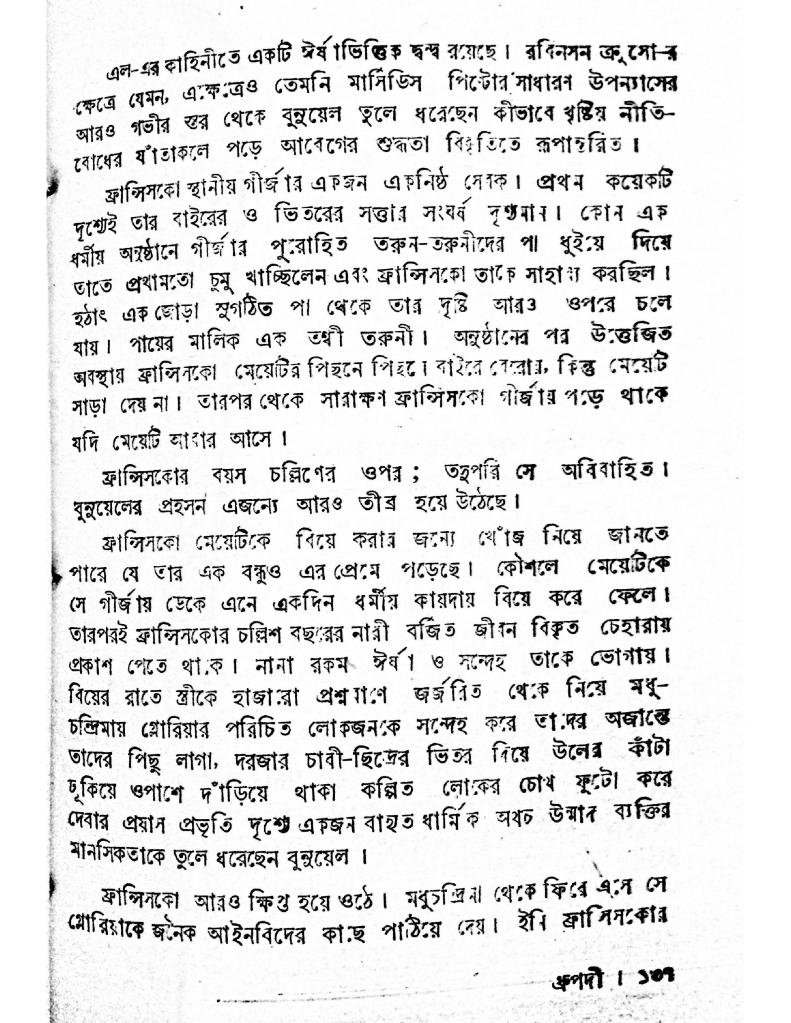 এল-এর কাহিনীতে একটি ঈর্ষাভিত্তিক দ্বন্দ্ব রয়েছে। রবিনসন ক্রুসো-র
ক্ষেত্রে যেমন, এক্ষেত্রেও তেমনি মার্সিডিস পিন্টোর সাধারণ উপন্যাসের
আরও গভীর স্তর থেকে বুনুয়েল তুলে ধরেছেন কীভাবে খৃষ্টিয় নীতি-
বোধের যাঁতাকলে পড়ে আবেগের শুদ্ধতা বিকৃতিতে রূপান্তরিত।
ফ্রান্সিসকো স্থানীয় গীর্জার একজন একনিষ্ঠ সেবক। প্রথম কয়েকটি
দৃশ্যেই তার বাইরের ও ভিতরের সত্তার সংঘর্ষ দৃশ্যমান। কোন এক
ধর্মীয় অনুষ্ঠানে গীর্জার পুরোহিত তরুন-তরুনীদের পা ধুইয়ে দিয়ে
তাতে প্রথামতো চুমু খাচ্ছিলেন এবং ফ্রান্সিসকো তাকে সাহায্য করছিল।
হঠাৎ এক জোড়া সুগঠিত পা থেকে তার দৃষ্টি আরও ওপরে চলে
যায়। পায়ের মালিক এক তন্বী তরুনী। অনুষ্ঠানের পর উত্তেজিত
অবস্থায় ফ্রান্সিসকো মেয়েটির পিছনে পিছনে বাইরে বেরোয়, কিন্তু মেয়েটি
সাড়া দেয় না। তারপর থেকে সারাক্ষণ ফ্রান্সিসকো গীর্জায় পড়ে থাকে
যদি মেয়েটি আবার আসে।
ফ্রান্সিসকোর বয়স চল্লিশের ওপর; তদুপরি সে অবিবাহিত।
বুনুয়েলের প্রহসন এজন্যে আরও তীব্র হয়ে উঠেছে।
ফ্রান্সিসকো মেয়েটিকে বিয়ে করার জন্যে খোঁজ নিয়ে জানতে
পারে যে তার এক বন্ধুও এর প্রেমে পড়েছে। কৌশলে মেয়েটিকে
সে গীর্জায় ডেকে এনে একদিন ধর্মীয় কায়দায় বিয়ে করে ফেলে।
তারপরই ফ্রান্সিসকোর চল্লিশ বছরের নারী বর্জিত জীবন বিকৃত চেহারায়
প্রকাশ পেতে থাকে। নানা রকম ঈর্ষা ও সন্দেহ তাকে ভোগায়।
বিয়ের রাতে স্ত্রীকে হাজারো প্রশ্নবাণে জর্জরিত থেকে নিয়ে মধু-
চন্দ্রিমায় গ্লোরিয়ার পরিচিত লোকজনকে সন্দেহ করে তাদের অজান্তে
তাদের পিছু লাগা, দরজার চাবী-ছিদ্রের ভিতর দিয়ে উলের কাঁটা
ঢুকিয়ে ওপাশে দাঁড়িয়ে থাকা কল্পিত লোকের চোখ ফুটো করে
দেবার প্রয়াস প্রভৃতি দৃশ্যে একজন বাহ্যত ধার্মিক অথচ উন্মাদ ব্যক্তির
মানসিকতাকে তুলে ধরেছেন বুনুয়েল।
ফ্রান্সিসকো আরও ক্ষিপ্ত হয়ে ওঠে। মধুচন্দ্রিমা থেকে ফিরে এসে সে
গ্লোরিয়াকে জনৈক আইনবিদের কাছে পাঠিয়ে দেয়। ইনি ফ্রান্সিসকোর
ধ্রুপদী। ১৩৭